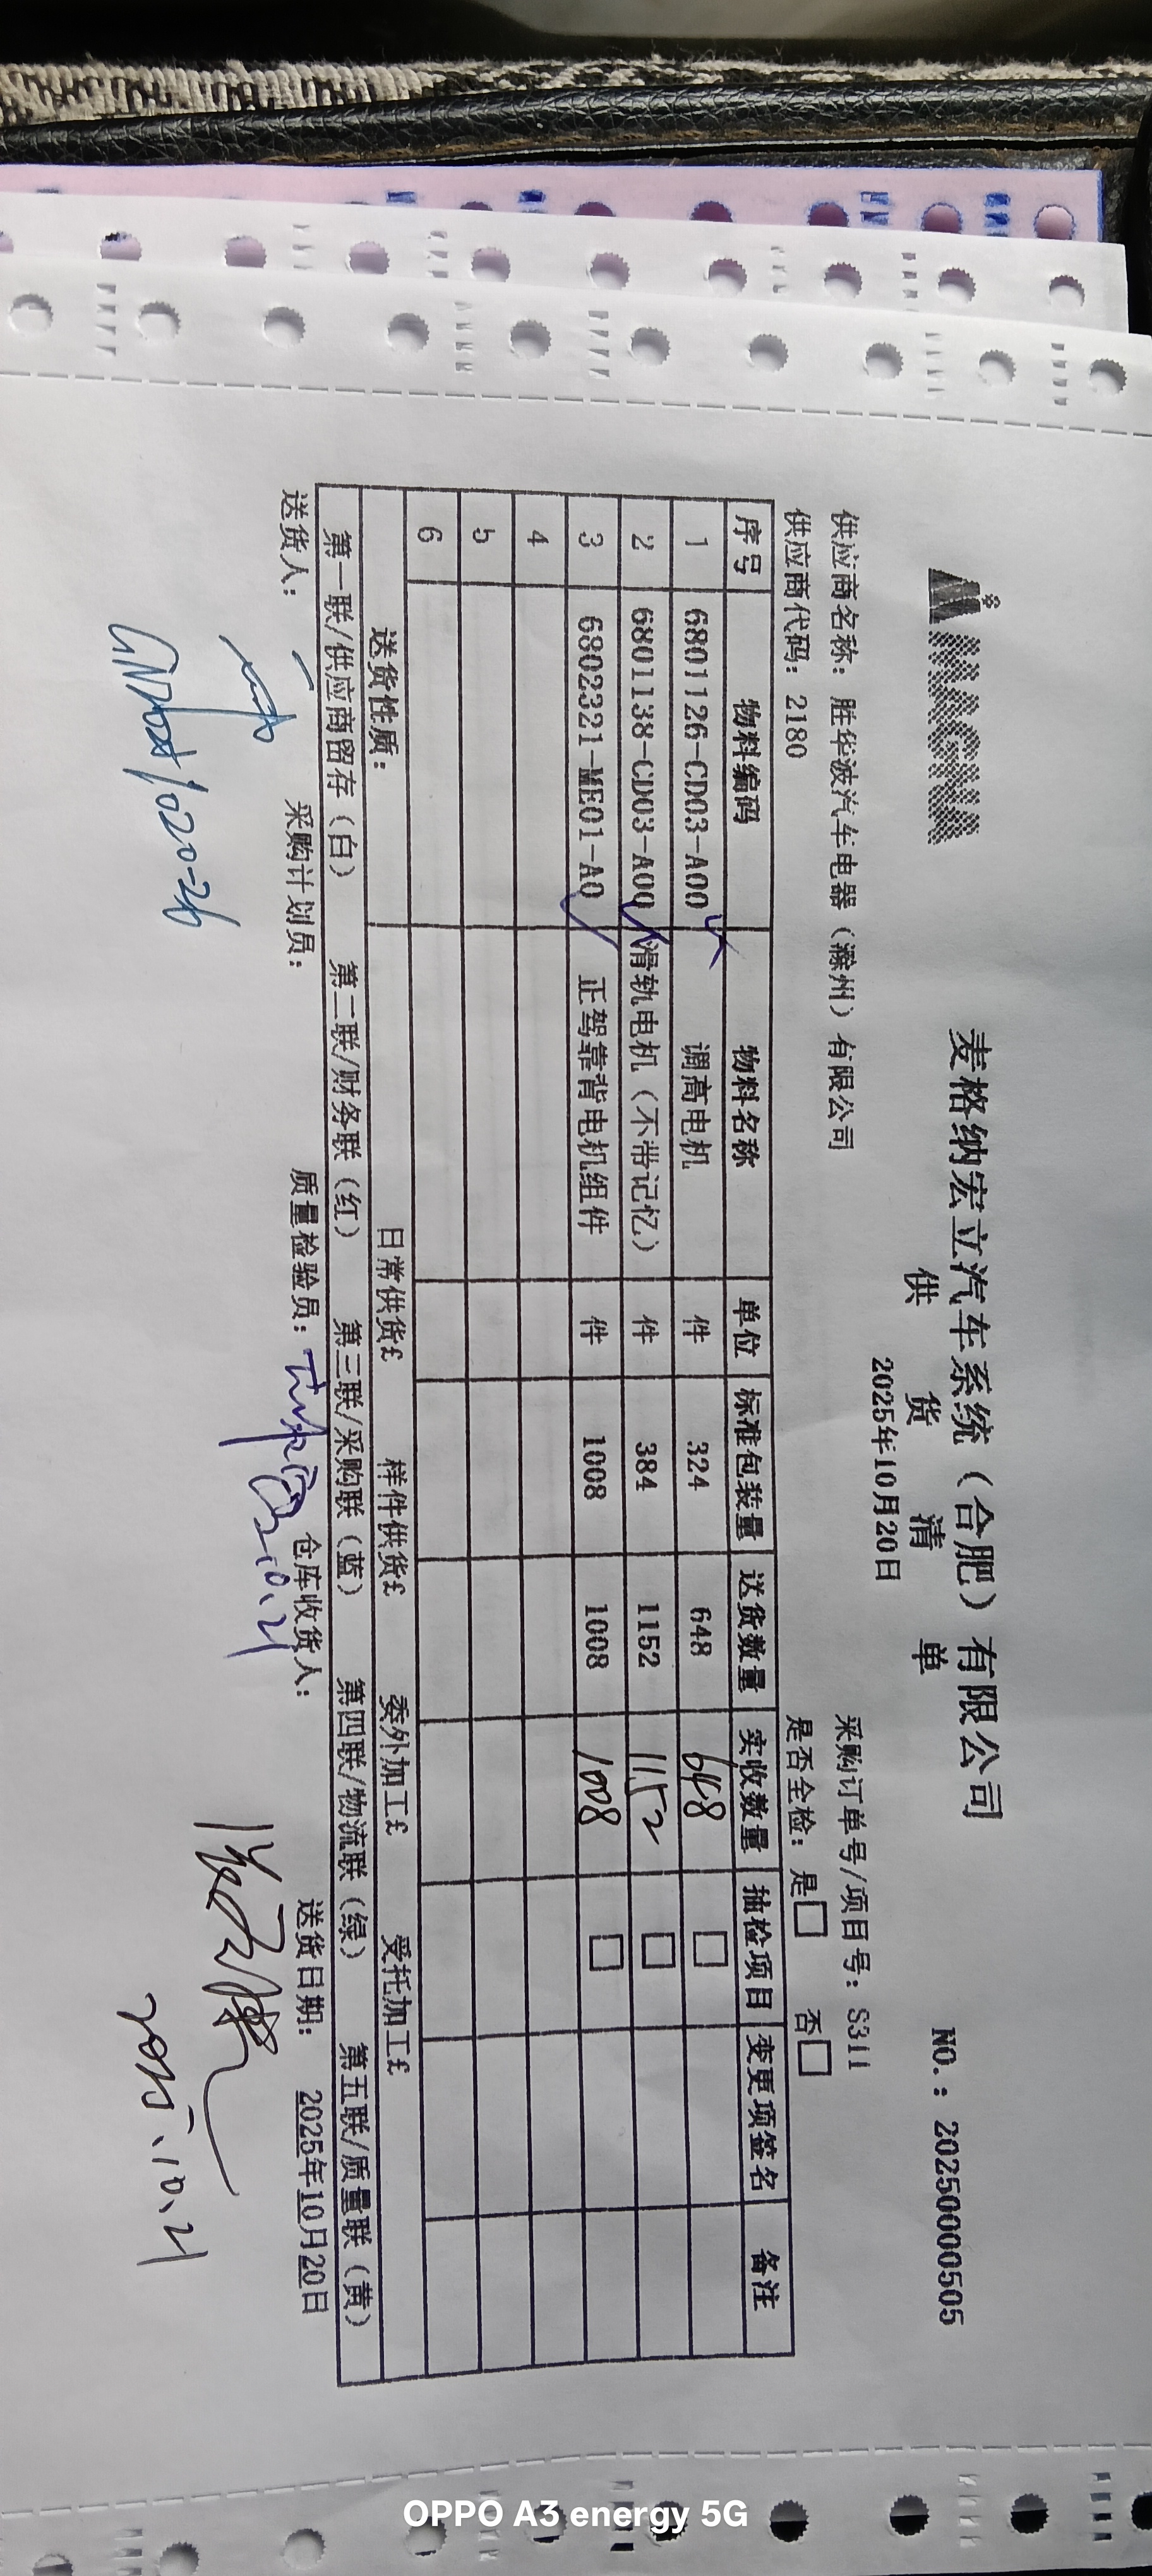 MAGNA
麦格纳宏立汽车系统（合肥）有限公司
供 货 清 单
NO.: 20250000505
2025年10月20日
供应商名称: 胜华波汽车电器（滁州）有限公司 采购订单号/项目号: S311
供应商代码: 2180 是否全检: 是□ 否□
序号 物料编码 物料名称 单位 标准包装量 送货数量 实收数量 抽检项目 变更项签名 备注
1 6801126-CD03-A00 调高电机 件 324 648 648 □
2 6801138-CD03-A00 滑轨电机（不带记忆） 件 384 1152 1152 □
3 6802321-ME01-A0 正驾靠背电机组件 件 1008 1008 1008 □
4
5
6
送货性质: 日常供货£ 样件供货£ 委外加工£ 受托加工£
第一联/供应商留存（白） 第二联/财务联（红） 第三联/采购联（蓝） 第四联/物流联（绿） 第五联/质量联（黄）
送货人: 采购计划员: 质量检验员: 仓库收货人: 送货日期: 2025年10月20日
2025.10.21
OPPO A3 energy 5G